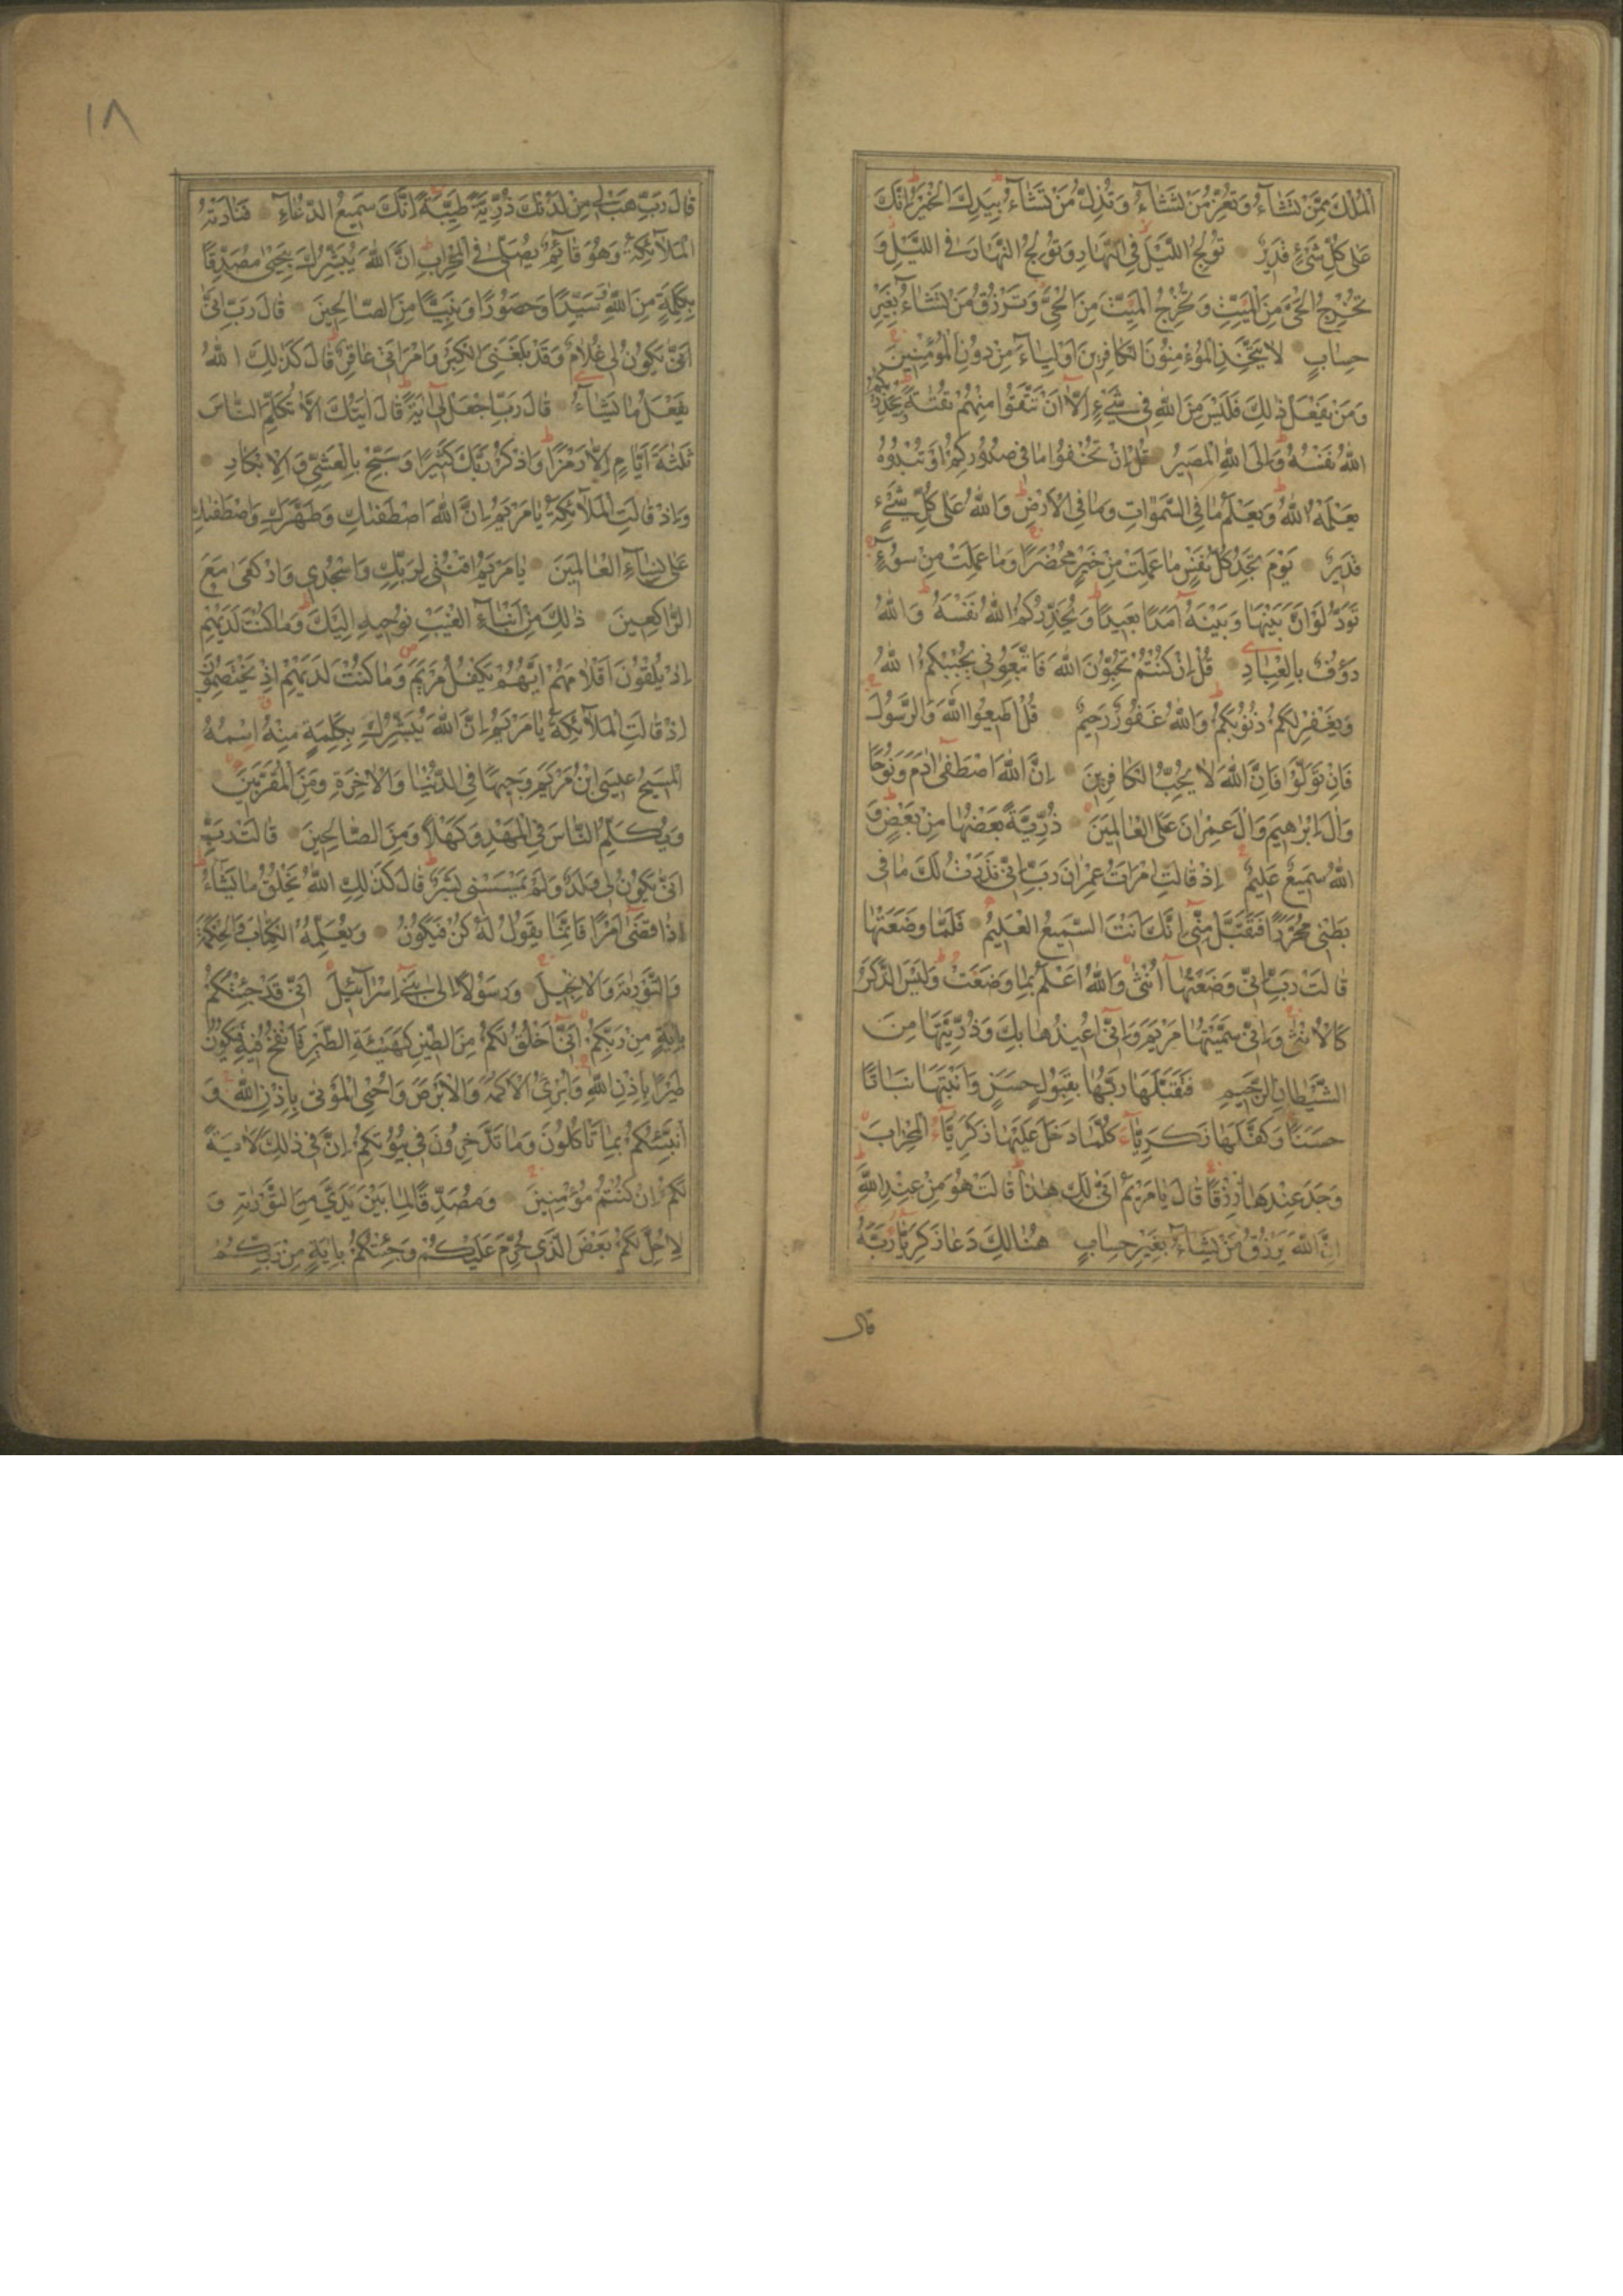 الْمُلْكَ مِمَّنْ تَشَاءُ وَتُعِزُّ مَنْ تَشَاءُ وَتُذِلُّ مَنْ تَشَاءُ بِيَدِكَ الْخَيْرُ إِنَّكَ
عَلَى كُلِّ شَيْءٍ قَدِيرٌ تُولِجُ اللَّيْلَ فِي النَّهَارِ وَتُولِجُ النَّهَارَ فِي اللَّيْلِ وَ
تُخْرِجُ الْحَيَّ مِنَ الْمَيِّتِ وَتُخْرِجُ الْمَيِّتَ مِنَ الْحَيِّ وَتَرْزُقُ مَنْ تَشَاءُ بِغَيْرِ
حِسَابٍ لَا يَتَّخِذِ الْمُؤْمِنُونَ الْكَافِرِينَ أَوْلِيَاءَ مِنْ دُونِ الْمُؤْمِنِينَ
وَمَنْ يَفْعَلْ ذَلِكَ فَلَيْسَ مِنَ اللَّهِ فِي شَيْءٍ إِلَّا أَنْ تَتَّقُوا مِنْهُمْ تُقَاةً وَيُحَذِّرُكُمُ
اللَّهُ نَفْسَهُ وَإِلَى اللَّهِ الْمَصِيرُ قُلْ إِنْ تُخْفُوا مَا فِي صُدُورِكُمْ أَوْ تُبْدُوهُ
يَعْلَمْهُ اللَّهُ وَيَعْلَمُ مَا فِي السَّمَوَاتِ وَمَا فِي الْأَرْضِ وَاللَّهُ عَلَى كُلِّ شَيْءٍ
قَدِيرٌ يَوْمَ تَجِدُ كُلُّ نَفْسٍ مَا عَمِلَتْ مِنْ خَيْرٍ مُحْضَرًا وَمَا عَمِلَتْ مِنْ سُوءٍ
تَوَدُّ لَوْ أَنَّ بَيْنَهَا وَبَيْنَهُ أَمَدًا بَعِيدًا وَيُحَذِّرُكُمُ اللَّهُ نَفْسَهُ وَاللَّهُ
رَؤُفٌ بِالْعِبَادِ قُلْ إِنْ كُنْتُمْ تُحِبُّونَ اللَّهَ فَاتَّبِعُونِي يُحْبِبْكُمُ اللَّهُ
وَيَغْفِرْ لَكُمْ ذُنُوبَكُمْ وَاللَّهُ غَفُورٌ رَحِيمٌ قُلْ أَطِيعُوا اللَّهَ وَالرَّسُولَ
فَإِنْ تَوَلَّوْا فَإِنَّ اللَّهَ لَا يُحِبُّ الْكَافِرِينَ إِنَّ اللَّهَ اصْطَفَى آدَمَ وَنُوحًا
وَآلَ إِبْرَاهِيمَ وَآلَ عِمْرَانَ عَلَى الْعَالَمِينَ ذُرِّيَّةً بَعْضُهَا مِنْ بَعْضٍ وَ
اللَّهُ سَمِيعٌ عَلِيمٌ إِذْ قَالَتِ امْرَأَتُ عِمْرَانَ رَبِّ إِنِّي نَذَرْتُ لَكَ مَا فِي
بَطْنِي مُحَرَّرًا فَتَقَبَّلْ مِنِّي إِنَّكَ أَنْتَ السَّمِيعُ الْعَلِيمُ فَلَمَّا وَضَعَتْهَا
قَالَتْ رَبِّ إِنِّي وَضَعْتُهَا أُنْثَى وَاللَّهُ أَعْلَمُ بِمَا وَضَعَتْ وَلَيْسَ الذَّكَرُ
كَالْأُنْثَى وَإِنِّي سَمَّيْتُهَا مَرْيَمَ وَإِنِّي أُعِيذُهَا بِكَ وَذُرِّيَّتَهَا مِنَ
الشَّيْطَانِ الرَّجِيمِ فَتَقَبَّلَهَا رَبُّهَا بِقَبُولٍ حَسَنٍ وَأَنْبَتَهَا نَبَاتًا
حَسَنًا وَكَفَّلَهَا زَكَرِيَّاءَ كُلَّمَا دَخَلَ عَلَيْهَا زَكَرِيَّاءُ الْمِحْرَابَ
وَجَدَ عِنْدَهَا رِزْقًا قَالَ يَا مَرْيَمُ أَنَّى لَكِ هَذَا قَالَتْ هُوَ مِنْ عِنْدِ اللَّهِ
إِنَّ اللَّهَ يَرْزُقُ مَنْ يَشَاءُ بِغَيْرِ حِسَابٍ هُنَالِكَ دَعَا زَكَرِيَّاءُ رَبَّهُ
قال
١٨
قَالَ رَبِّ هَبْ لِي مِنْ لَدُنْكَ ذُرِّيَّةً طَيِّبَةً إِنَّكَ سَمِيعُ الدُّعَاءِ فَنَادَتْهُ
الْمَلَائِكَةُ وَهُوَ قَائِمٌ يُصَلِّي فِي الْمِحْرَابِ إِنَّ اللَّهَ يُبَشِّرُكَ بِيَحْيَى مُصَدِّقًا
بِكَلِمَةٍ مِنَ اللَّهِ وَسَيِّدًا وَحَصُورًا وَنَبِيًّا مِنَ الصَّالِحِينَ قَالَ رَبِّ أَنَّى
أَنَّى يَكُونُ لِي غُلَامٌ وَقَدْ بَلَغَنِيَ الْكِبَرُ وَامْرَأَتِي عَاقِرٌ قَالَ كَذَلِكَ اللَّهُ
يَفْعَلُ مَا يَشَاءُ قَالَ رَبِّ اجْعَلْ لِي آيَةً قَالَ آيَتُكَ أَلَّا تُكَلِّمَ النَّاسَ
ثَلَثَةَ أَيَّامٍ إِلَّا رَمْزًا وَاذْكُرْ رَبَّكَ كَثِيرًا وَسَبِّحْ بِالْعَشِيِّ وَالْإِبْكَارِ
وَإِذْ قَالَتِ الْمَلَائِكَةُ يَا مَرْيَمُ إِنَّ اللَّهَ اصْطَفَىكِ وَطَهَّرَكِ وَاصْطَفَىكِ
عَلَى نِسَاءِ الْعَالَمِينَ يَا مَرْيَمُ اقْنُتِي لِرَبِّكِ وَاسْجُدِي وَارْكَعِي مَعَ
الرَّاكِعِينَ ذَلِكَ مِنْ أَنْبَاءِ الْغَيْبِ نُوحِيهِ إِلَيْكَ وَمَا كُنْتَ لَدَيْهِمْ
إِذْ يُلْقُونَ أَقْلَامَهُمْ أَيُّهُمْ يَكْفُلُ مَرْيَمَ وَمَا كُنْتَ لَدَيْهِمْ إِذْ يَخْتَصِمُونَ
إِذْ قَالَتِ الْمَلَائِكَةُ يَا مَرْيَمُ إِنَّ اللَّهَ يُبَشِّرُكِ بِكَلِمَةٍ مِنْهُ اسْمُهُ
الْمَسِيحُ عِيسَى ابْنُ مَرْيَمَ وَجِيهًا فِي الدُّنْيَا وَالْآخِرَةِ وَمِنَ الْمُقَرَّبِينَ
وَيُكَلِّمُ النَّاسَ فِي الْمَهْدِ وَكَهْلًا وَمِنَ الصَّالِحِينَ قَالَتْ رَبِّ
أَنَّى يَكُونُ لِي وَلَدٌ وَلَمْ يَمْسَسْنِي بَشَرٌ قَالَ كَذَلِكِ اللَّهُ يَخْلُقُ مَا يَشَاءُ
إِذَا قَضَى أَمْرًا فَإِنَّمَا يَقُولُ لَهُ كُنْ فَيَكُونُ وَيُعَلِّمُهُ الْكِتَابَ وَالْحِكْمَةَ
وَالتَّوْرَيةَ وَالْإِنْجِيلَ وَرَسُولًا إِلَى بَنِي إِسْرَائِيلَ أَنِّي قَدْ جِئْتُكُمْ
بِآيَةٍ مِنْ رَبِّكُمْ أَنِّي أَخْلُقُ لَكُمْ مِنَ الطِّينِ كَهَيْئَةِ الطَّيْرِ فَأَنْفُخُ فِيهِ فَيَكُونُ
طَيْرًا بِإِذْنِ اللَّهِ وَأُبْرِئُ الْأَكْمَهَ وَالْأَبْرَصَ وَأُحْيِي الْمَوْتَى بِإِذْنِ اللَّهِ وَ
أُنَبِّئُكُمْ بِمَا تَأْكُلُونَ وَمَا تَدَّخِرُونَ فِي بُيُوتِكُمْ إِنَّ فِي ذَلِكَ لَآيَةً
لَكُمْ إِنْ كُنْتُمْ مُؤْمِنِينَ وَمُصَدِّقًا لِمَا بَيْنَ يَدَيَّ مِنَ التَّوْرَيةِ وَ
لِأُحِلَّ لَكُمْ بَعْضَ الَّذِي حُرِّمَ عَلَيْكُمْ وَجِئْتُكُمْ بِآيَةٍ مِنْ رَبِّكُمْ